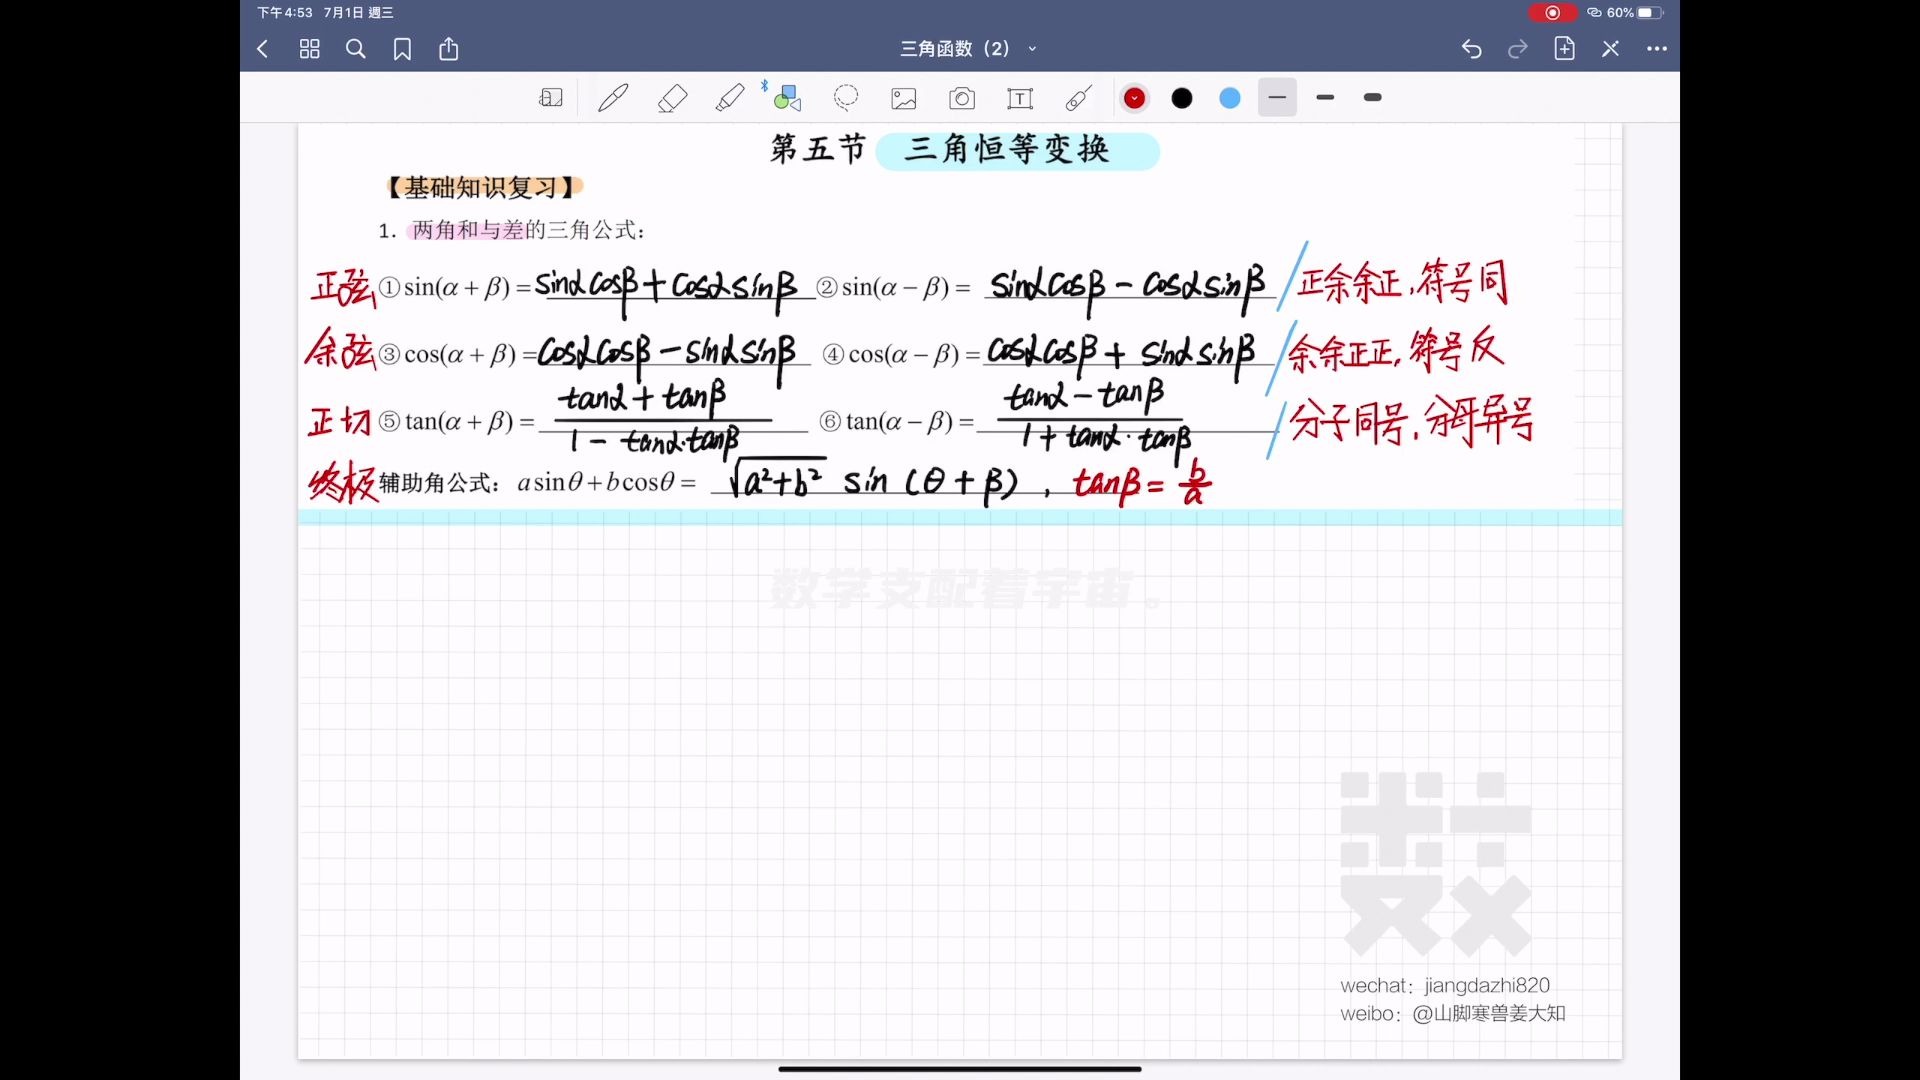 下午4:53 7月1日 週三 60%
三角函数（2）
第五节 三角恒等变换
【基础知识复习】
1. 两角和与差的三角公式：
正弦 ①sin(α + β) = sinαcosβ + cosαsinβ ②sin(α − β) = sinαcosβ − cosαsinβ 正余余正,符号同
余弦 ③cos(α + β) = cosαcosβ − sinαsinβ ④cos(α − β) = cosαcosβ + sinαsinβ 余余正正,符号反
正切 ⑤tan(α + β) = (tanα + tanβ)/(1 − tanα·tanβ) ⑥tan(α − β) = (tanα − tanβ)/(1 + tanα·tanβ) 分子同号,分母异号
终极 辅助角公式：a sinθ + b cosθ = √(a²+b²) sin(θ + β), tanβ = b/a
数学支配着宇宙。
数
wechat：jiangdazhi820
weibo：@山脚寒兽姜大知